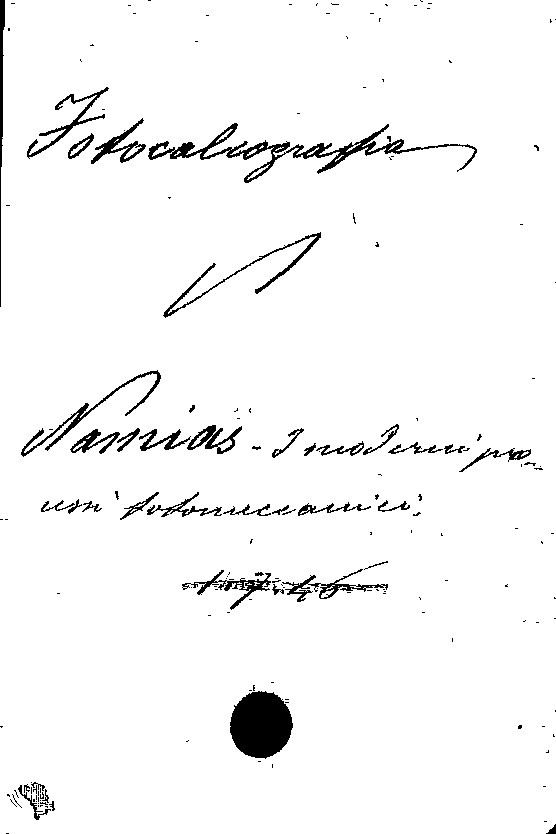 Fotocalcografia
V
Namias - I moderni pro-
cessi fotomeccanici.
1.7.46